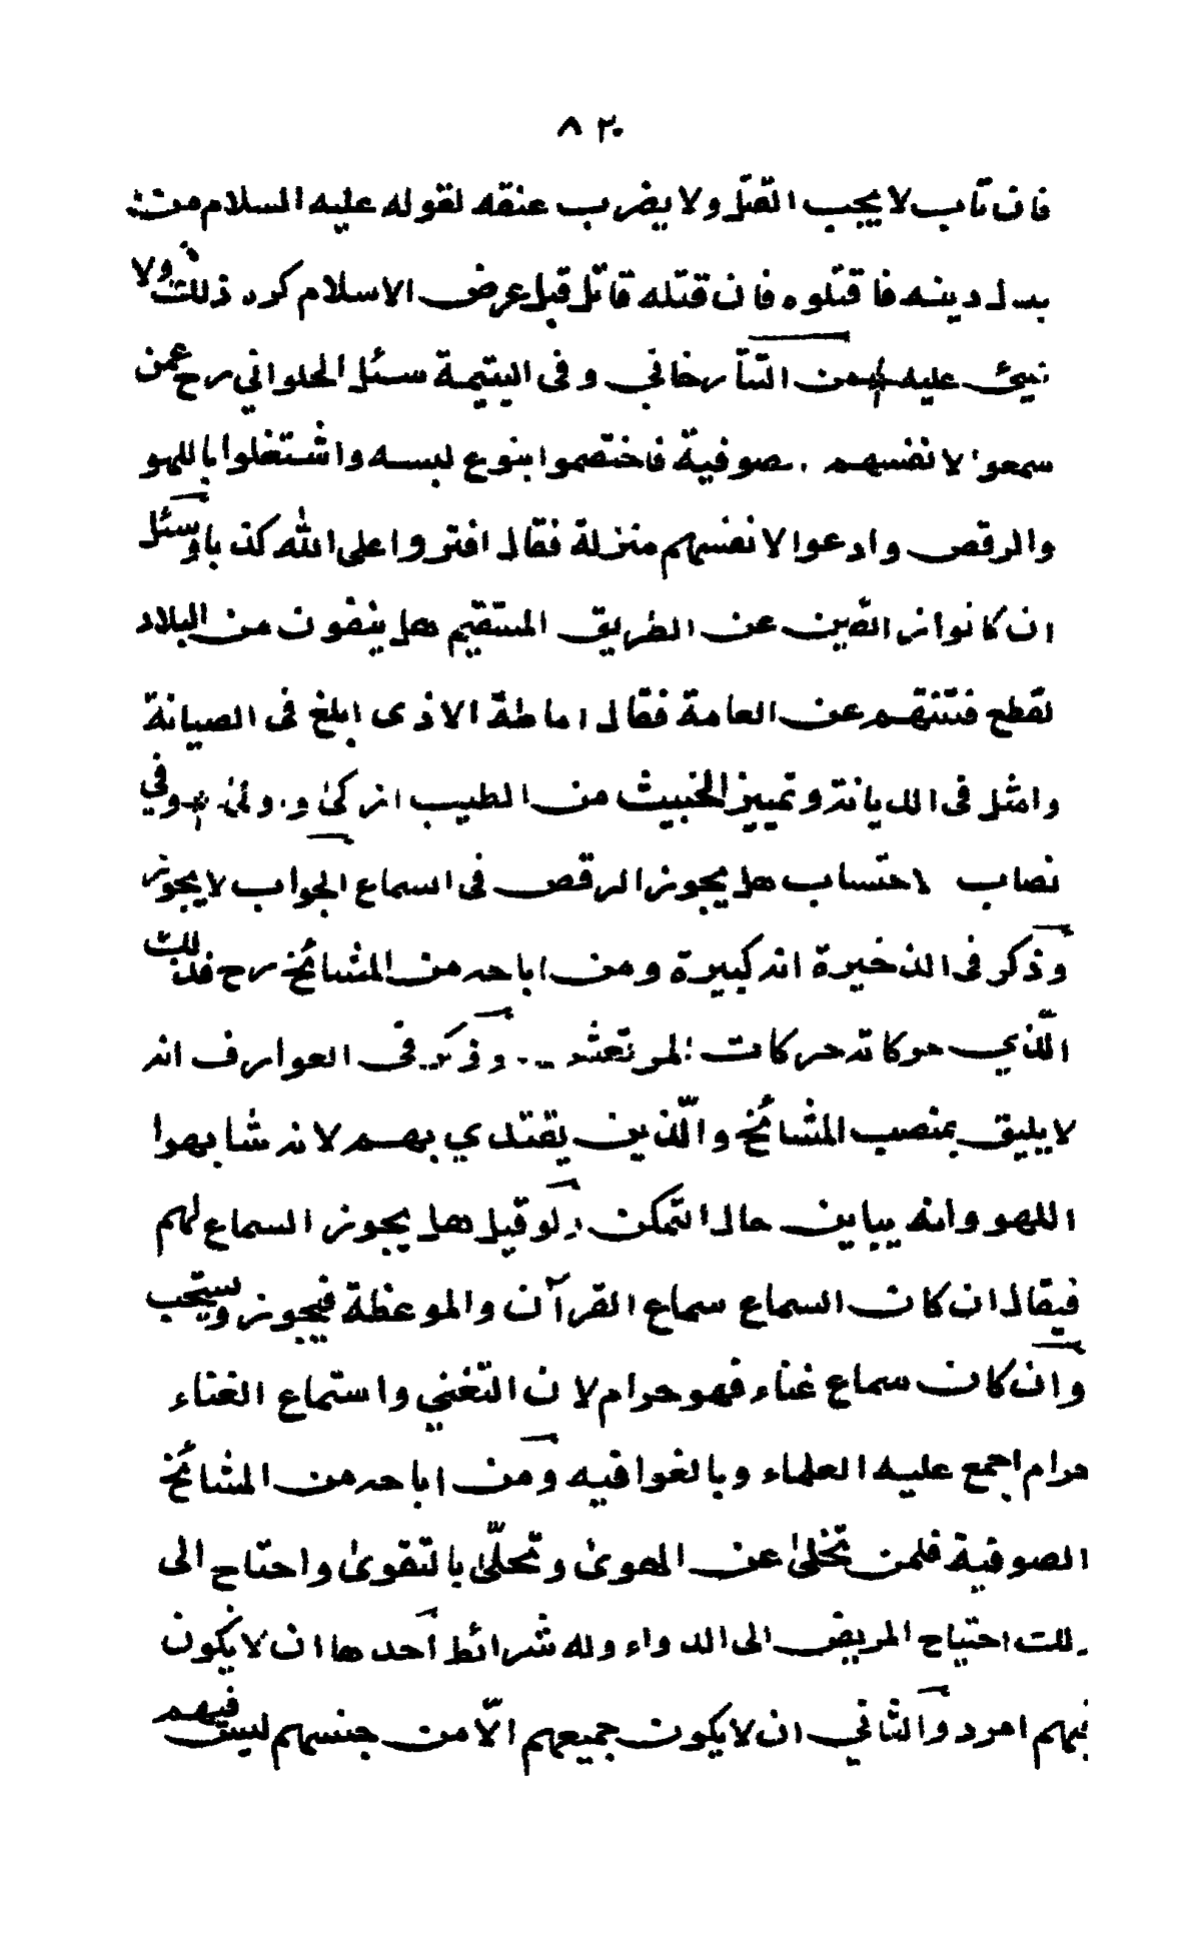 ٨٣٠
فان تاب لا يجب القتل ولا يضرب عنقه لقوله عليه السلام من
بدل دينه فاقتلوه فان قتله قاتل قبل عرض الاسلام كره ذلك ولا
شيئ عليه من التتارخاني وفي اليتيمة سئل الحلواني رح عمن
سموا لانفسهم صوفية فاختصموا بنوع لبسه واشتغلوا باللهو
والرقص وادعوا لانفسهم منزلة فقال افتروا على الله كذبا وسئل
ان كانوا زائغين عن الطريق المستقيم هل ينفون من البلاد
لقطع فتنتهم عن العامة فقال اماطة الاذى ابلغ في الصيانة
وامثل في الديانة وتمييز الخبيث من الطيب ازكى و اولى وفي
نصاب الاحتساب هل يجوز الرقص في السماع الجواب لا يجوز
وذكر في الذخيرة انه كبيرة ومن اباحه من المشائخ رح فذلك
الذي حركاته حركات المرتعش وذكر في العوارف انه
لا يليق بمنصب المشائخ والّذين يقتدي بهم لانه شابه
اللهو وانه يباين حال التمكن ولو قيل هل يجوز السماع لهم
فيقال ان كان السماع سماع القرآن والموعظة فيجوز ويستحب
وان كان سماع غناء فهو حرام لان التغني واستماع الغناء
حرام اجمع عليه العلماء وبالغوا فيه ومن اباحه من المشائخ
الصوفية فلمن تخلىٰ عن الهوىٰ وتحلّىٰ بالتقوىٰ واحتاج الى
ذلك احتياج المريض الى الدواء وله شرائط احدها ان لا يكون
فيهم امرد والثاني ان لا يكون جميعهم الّا من جنسهم ليس فيهم